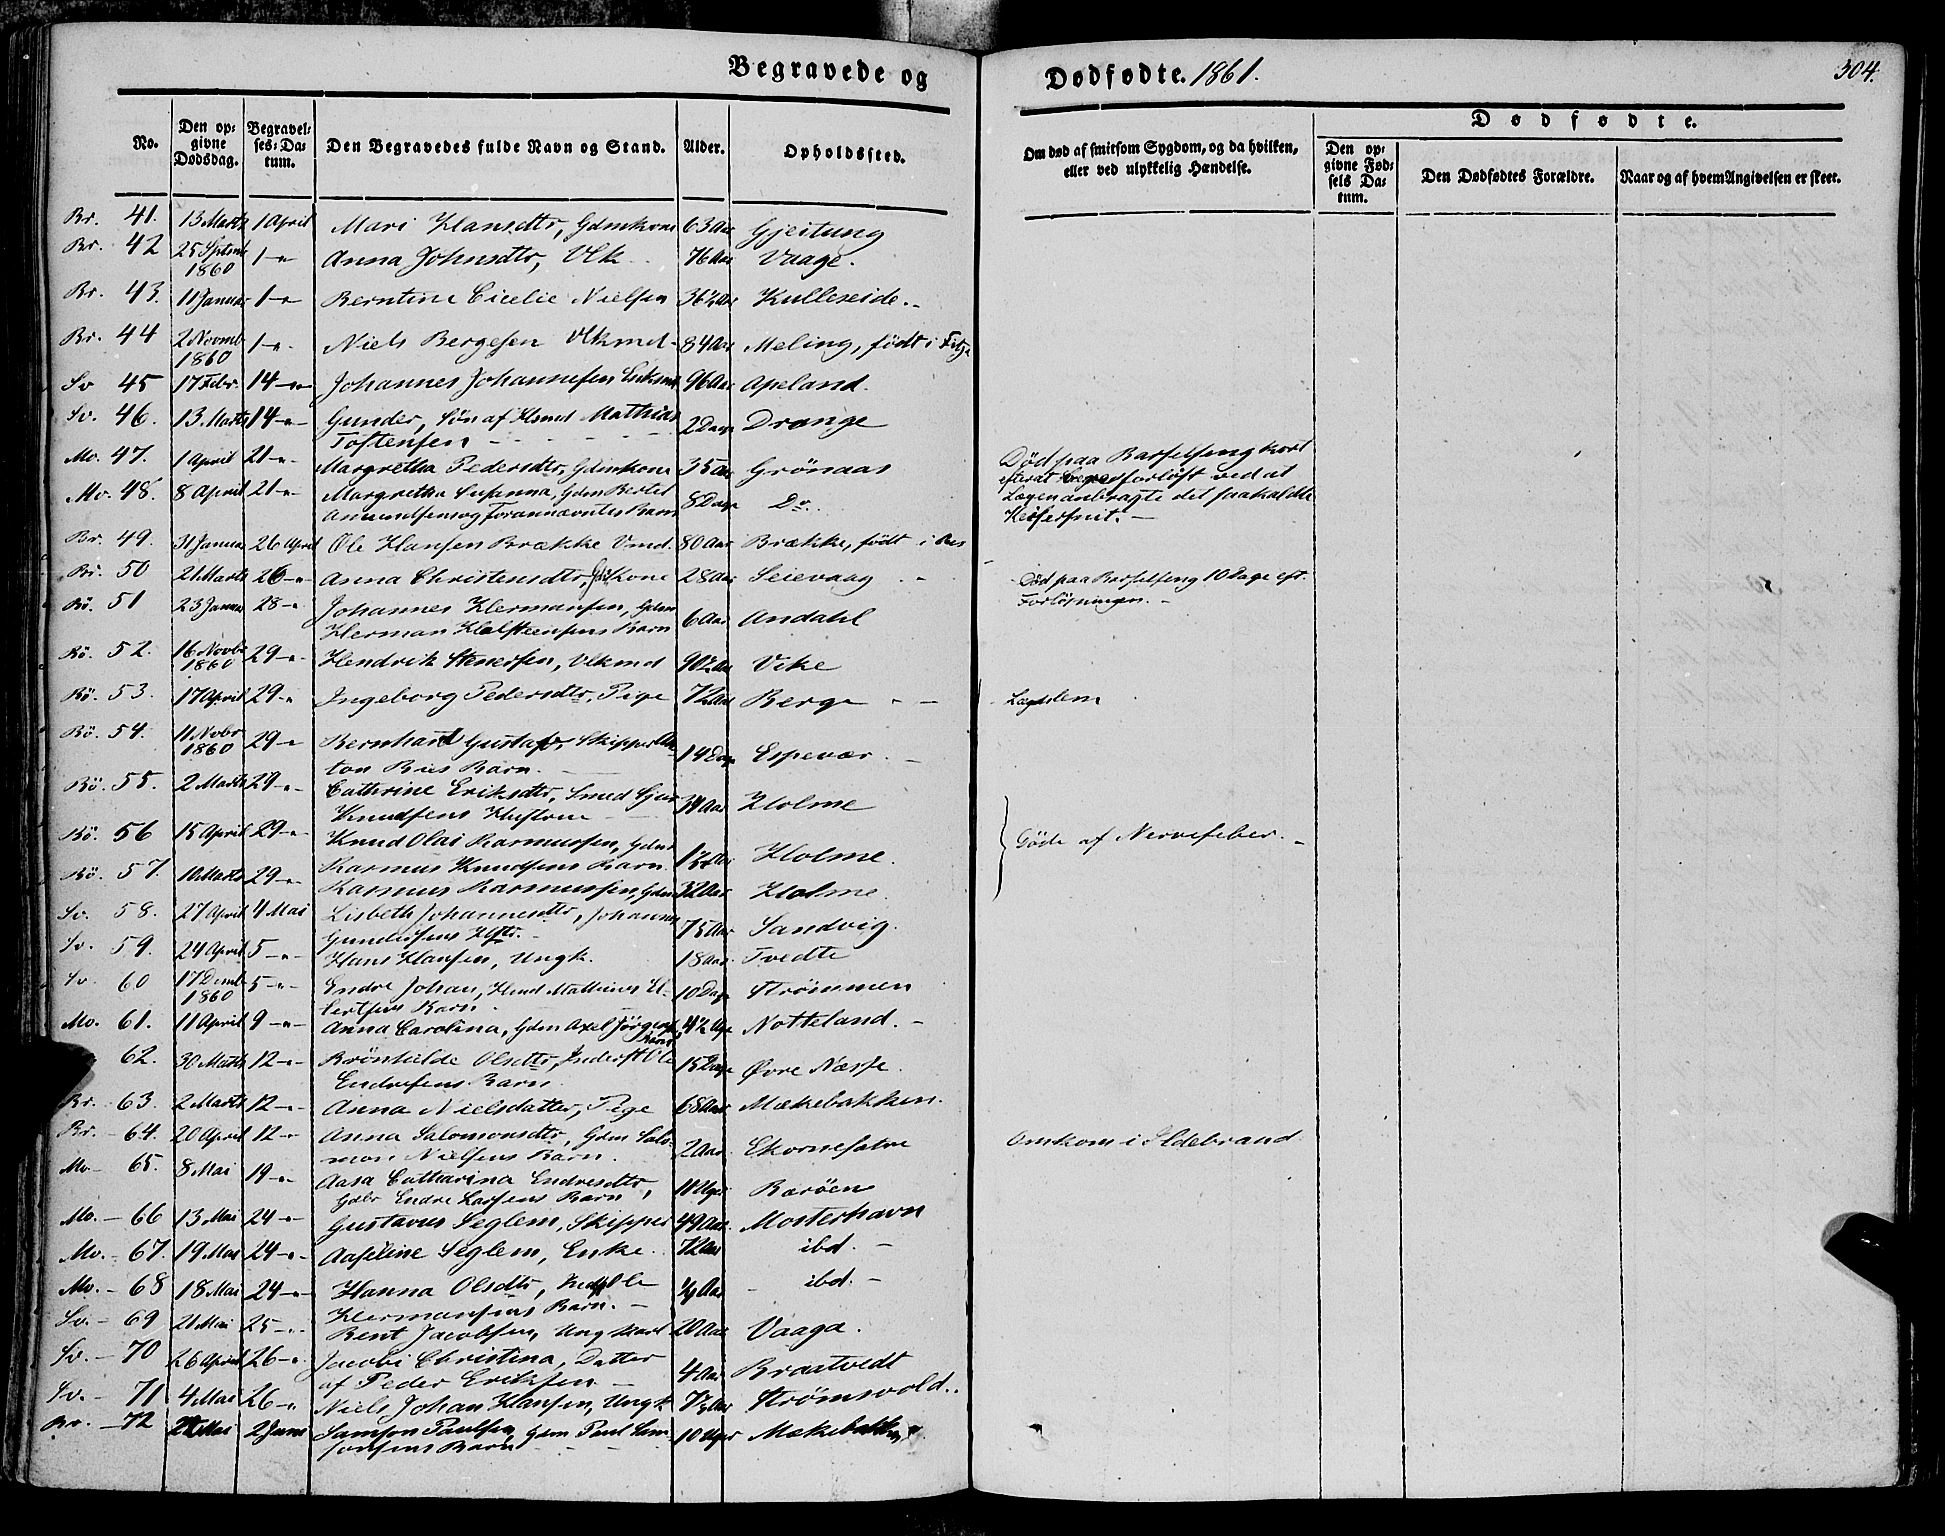 Begravede og
Dødfødte. 1861.
304.
No.
Den op=
givne
Dødsdag.
Begravel=
ses=Da=
tum.
Den Begravedes fulde Navn og Stand.
Alder.
Opholdssted.
Om død af smitsom Sygdom, og da hvilken,
eller ved ulykkelig Hændelse.
Dødfødte.
Den op=
givne Fød=
sels Da=
tum.
Den Dødfødtes Forældre.
Naar og af hvem Angivelsen er skeet.
Br. 41. 13 Marts 1 April Mari Hansdtr, Gdmkone 63 Aar Gjeitung
Br. 42 25 Septmb 1860 1 -"- Anna Johnsdtr, Vlk 76 Aar Vaage.
Br. 43. 11 Januar 1 -"- Berntine Cicelie Nielsen 36½ Aar Kulleseide.
Br. 44 2 Novmb 1860 1 -"- Niels Bergesen Vlkmd 84 Aar Meling, født i Fitje
Sv 45 17 Febr. 14 -"- Johannes Johannesen Enkemd 96 Aar Apeland.
Sv. 46. 13 Marts 14 -"- Gunder, Søn af Hsmd Mathias
Tostensen 2 Dage Drange
Mo. 47. 1 April 21 -"- Margretha Pedersdtr, Gdmkone 35 Aar Grönaas
Død paa Barselseng kort
efterat forløst ved at
Lægen anbragte det saakaldte
Keisersnit.
Mo. 48. 8 April 21 -"- Margretha Susanna, Gdm Bertel
Amundsens og forannævntes Barn 8 Dage Do.
Br. 49. 31 Januar 26 April Ole Hansen Brække Vmd. 80 Aar Brække, født i
Br. 50 21 Marts 26 -"- Anna Christensdtr, Kone 28 Aar Seievaag
Død paa Barselseng 10 Dage eft.
Forløsningen.
Bö. 51 23 Januar 28 -" Johannes Hermansen, Gdm
Herman Halsteensens Barn 6 Aar Andahl
Bö. 52. 16 Novbr 1860 29 -"- Hendrik Stenersen, Vlkmd 90½ Aar Vike
Bö. 53. 17 April 29 -" Ingeborg Pedersdtr, Pige 72 Aar Berge
Lægdslem
Bö. 54. 11 Novbr 1860 29 -" Bernhard Gustav, Skipper An-
ton Bies Barn. 14 Dage Espevær.
Bö. 55. 2 Marts 29 -"- Cathrine Eriksdtr, Smed
Knudsens Hustrue 39 Aar Holme
Bö. 56 15 April 29 -"- Knud Olai Rasmussen, Gdm
Rasmus Knudsens Barn Holme.
Døde af Nervefeber.
Bö. 57. Marts 29 -"- Rasmus Rasmussen, Gdm 32 Aar Holme.
Sv. 58. 27 April 4 Mai Lisbeth Johannesdtr, Johannes
Gundersens Hstr. 75 Aar Sandvig.
Sv. 59. 24 April 5 -"- Hans Hansen, Ungk. 18 Aar Tvedte
Sv. 60 17 Decmb 1860 5 -"- Endre Johan, Hsmd Mathias El-
lertsens Barn 10 Dage Strömmen
Mo. 61. 11 April 9 -"- Anna Carolina, Gdm Axel Jörgens
Barn 4½ Notteland.
62. 30 Marts 12 -"- Brönhilde Olsdtr, Inderst Ole
Endresens Barn 15 Dage Øvre Næsse.
Br. - 63. 2 Marts 12 -"- Anna Nielsdatter, Pige 68 Aar Mækebakken.
Br. - 64. 20 April 12 -"- Anna Salomonsdtr, Gdm Salo-
mon Nielsens Barn. 2 Aar Ekornesætre
Omkom i Ildebrand
Mo - 65. 8 Mai 19 -"- Aasa Catharina Endresdtr,
Gdbr Endre Larsens Barn Uger Baröen
Mo. - 66 13 Mai 24 -"- Gustavus Seglem, Skipper 49 Aar. Mosterhavn
Mo. - 67. 19 Mai 24 -"- Aaseline Seglem, Enke. 72 Aar ibd.
Mo. - 68 18 Mai 24 -"- Hanna Olsdtr, Ole
Hermansens Barn. Aar ibd.
Sv. - 69 21 Mai 25 -"- Bent Jacobsen, Ungkarl 20 Aar Vaaga.
Sv. - 70 26 April 26 -"- Jacobi Christina, Datter
af Peder Eriksen 4 Aar Braatvedt
Sv. - 71 4 Mai 26 -" Niels Johan Hansen, Ungk Aar Strömsvold.
Br. - 72 Mai 2 Juni Samson Paulsen, Gdm Paul Sam-
sonsens Barn 10 Uger Mækebakken.